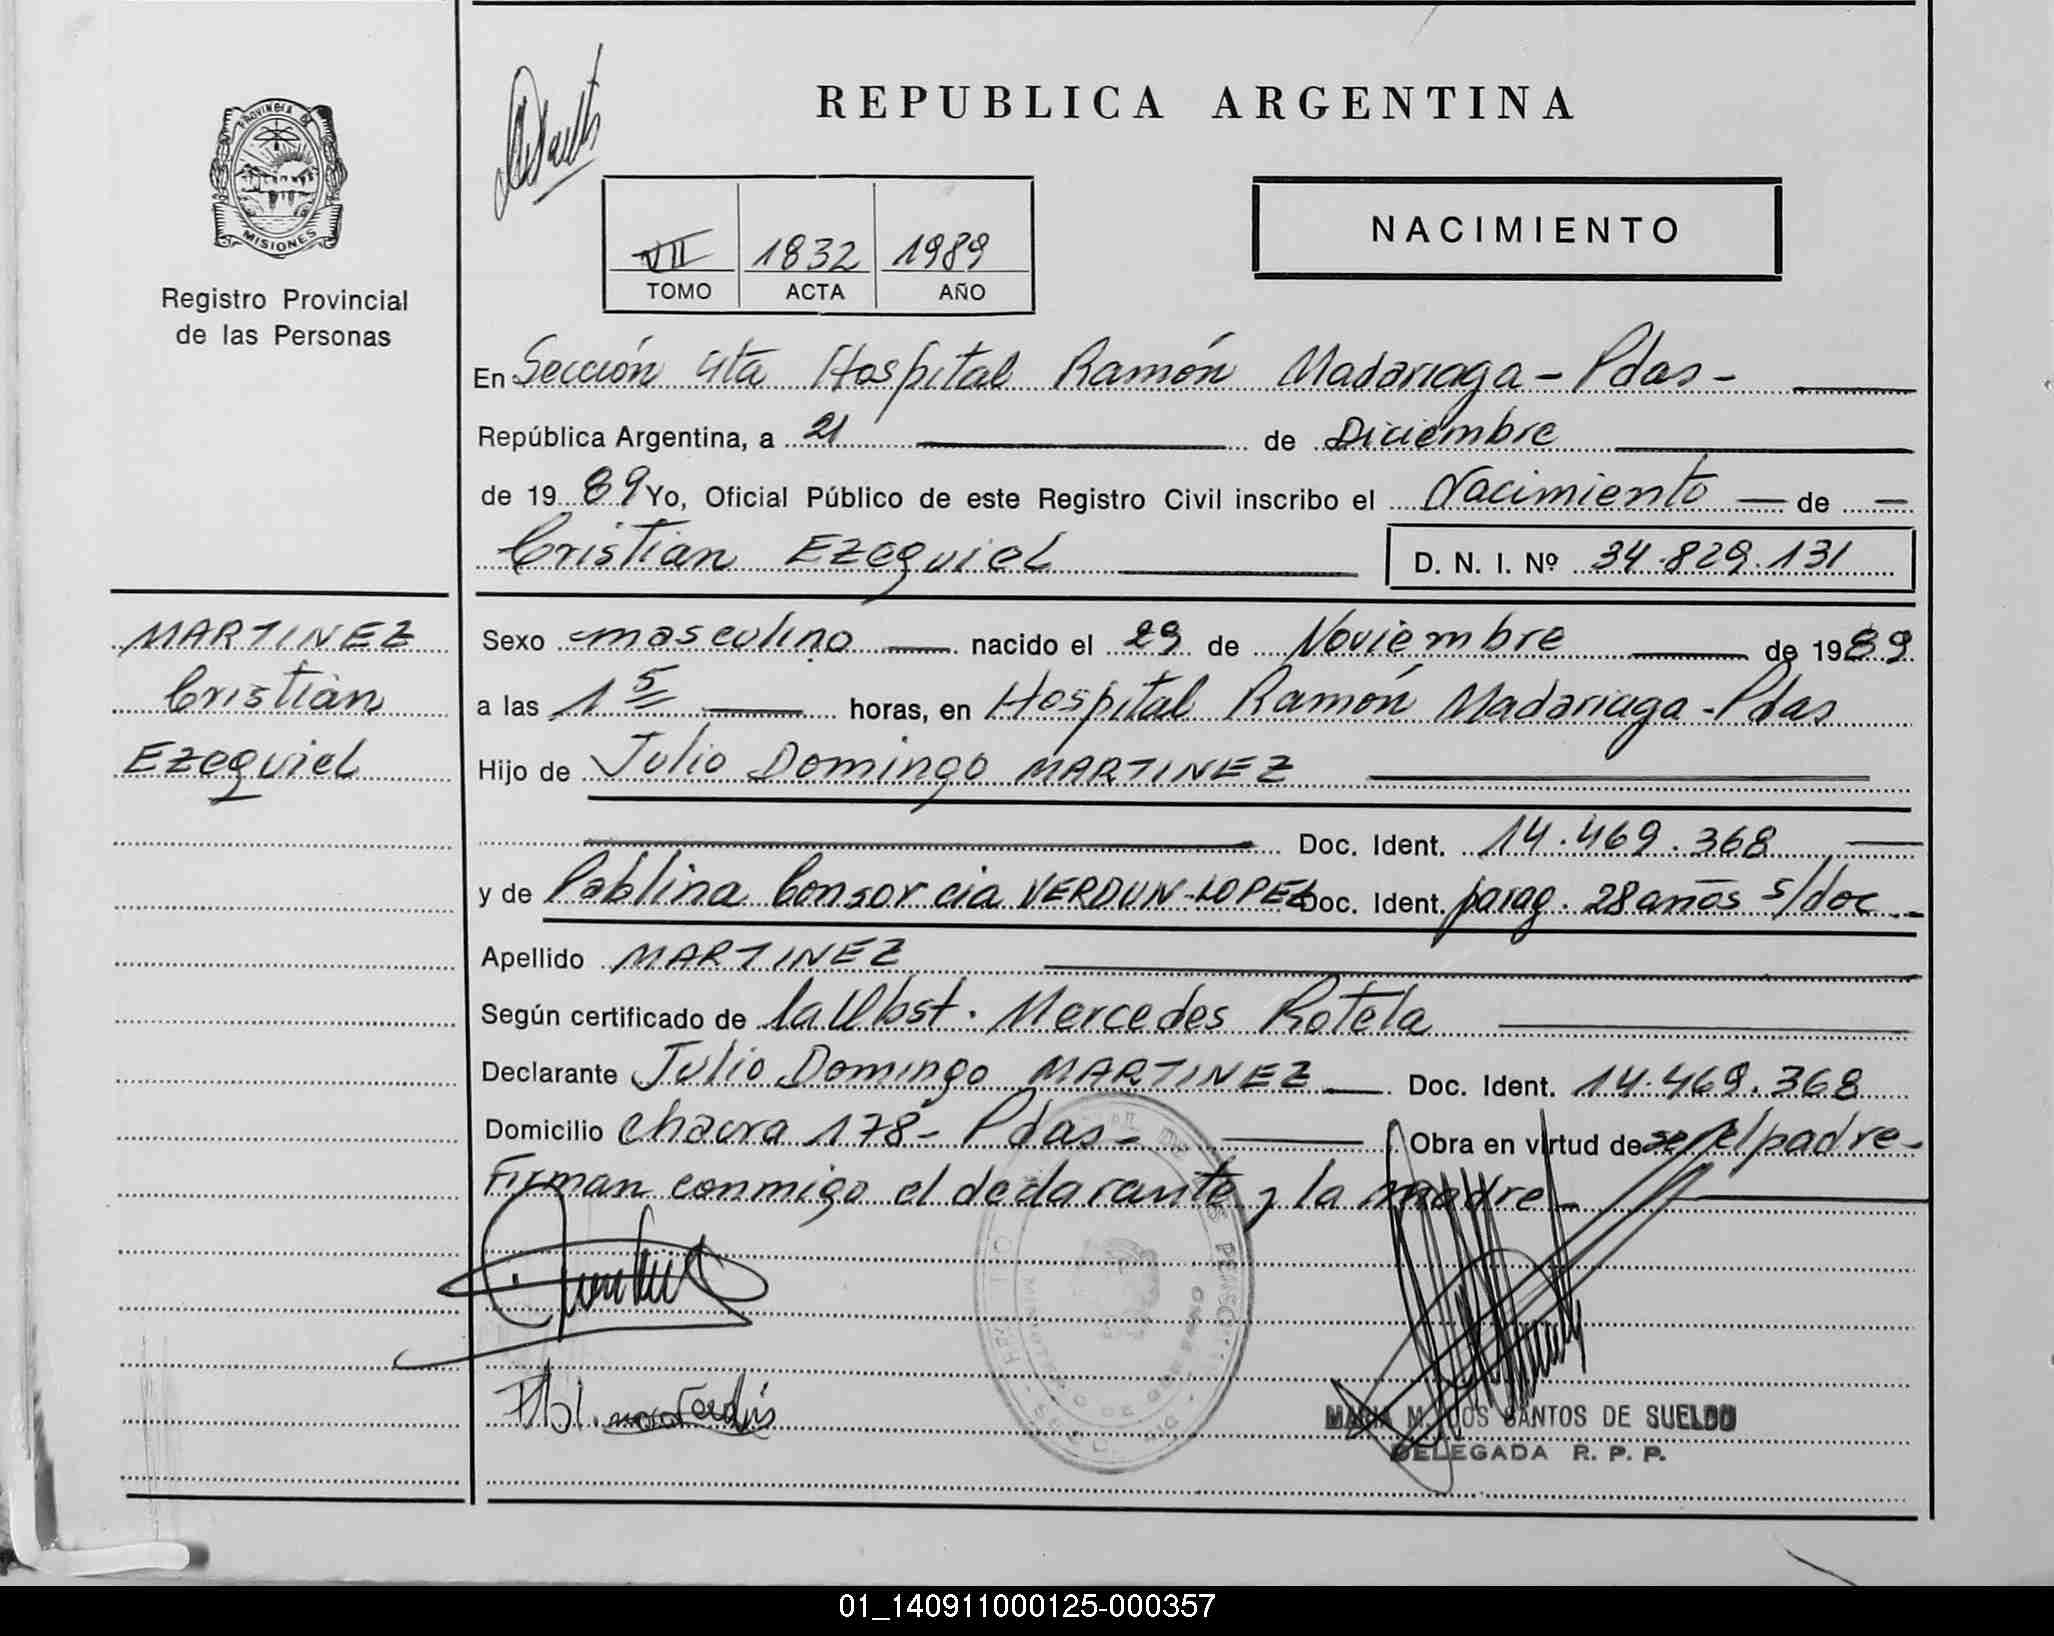 PROVINCIA DE
MISIONES
Registro Provincial
de las Personas
REPUBLICA ARGENTINA
NACIMIENTO
VII 1832 1989
TOMO ACTA AÑO
En Sección 4ta Hospital Ramón Madariaga - Pdas -
República Argentina, a 21 de Diciembre
de 1989 Yo, Oficial Público de este Registro Civil inscribo el Nacimiento de
Cristian Ezequiel D. N. I. Nº 34.829.131
MARTINEZ
Cristian
Ezequiel
Sexo masculino nacido el 29 de Noviembre de 1989
a las 1 5 horas, en Hospital Ramón Madariaga - Pdas
Hijo de Julio Domingo MARTINEZ
Doc. Ident. 14.469.368
y de Pablina Consorcia VERDUN-LOPEZ Doc. Ident. parag. 28 años s/doc -
Apellido MARTINEZ
Según certificado de la Obst. Mercedes Rotela
Declarante Julio Domingo MARTINEZ Doc. Ident. 14.469.368
Domicilio Chacra 178 - Pdas - Obra en virtud de ser el padre -
Firman conmigo el declarante y la madre -
MARIA M. DOS SANTOS DE SUELDO
DELEGADA R. P. P.
01_140911000125-000357